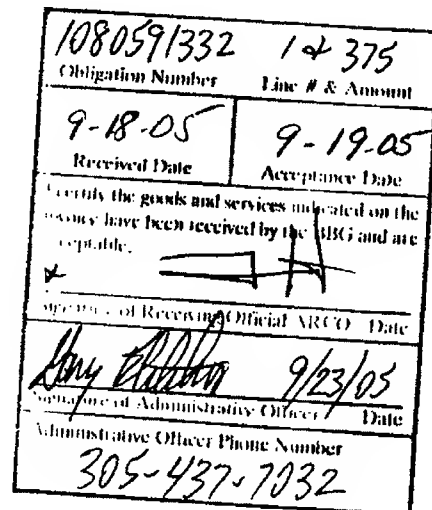 1080591332 1 & 375
Obligation Number Line # & Amount
9-18-05 9-19-05
Received Date Acceptance Date
certify the goods and services indicated on the
have been received by the BBG and are
Receiving Official ARCO Date
9/23/05
Signature of Administrative Officer Date
Administrative Officer Phone Number
305-437-7032